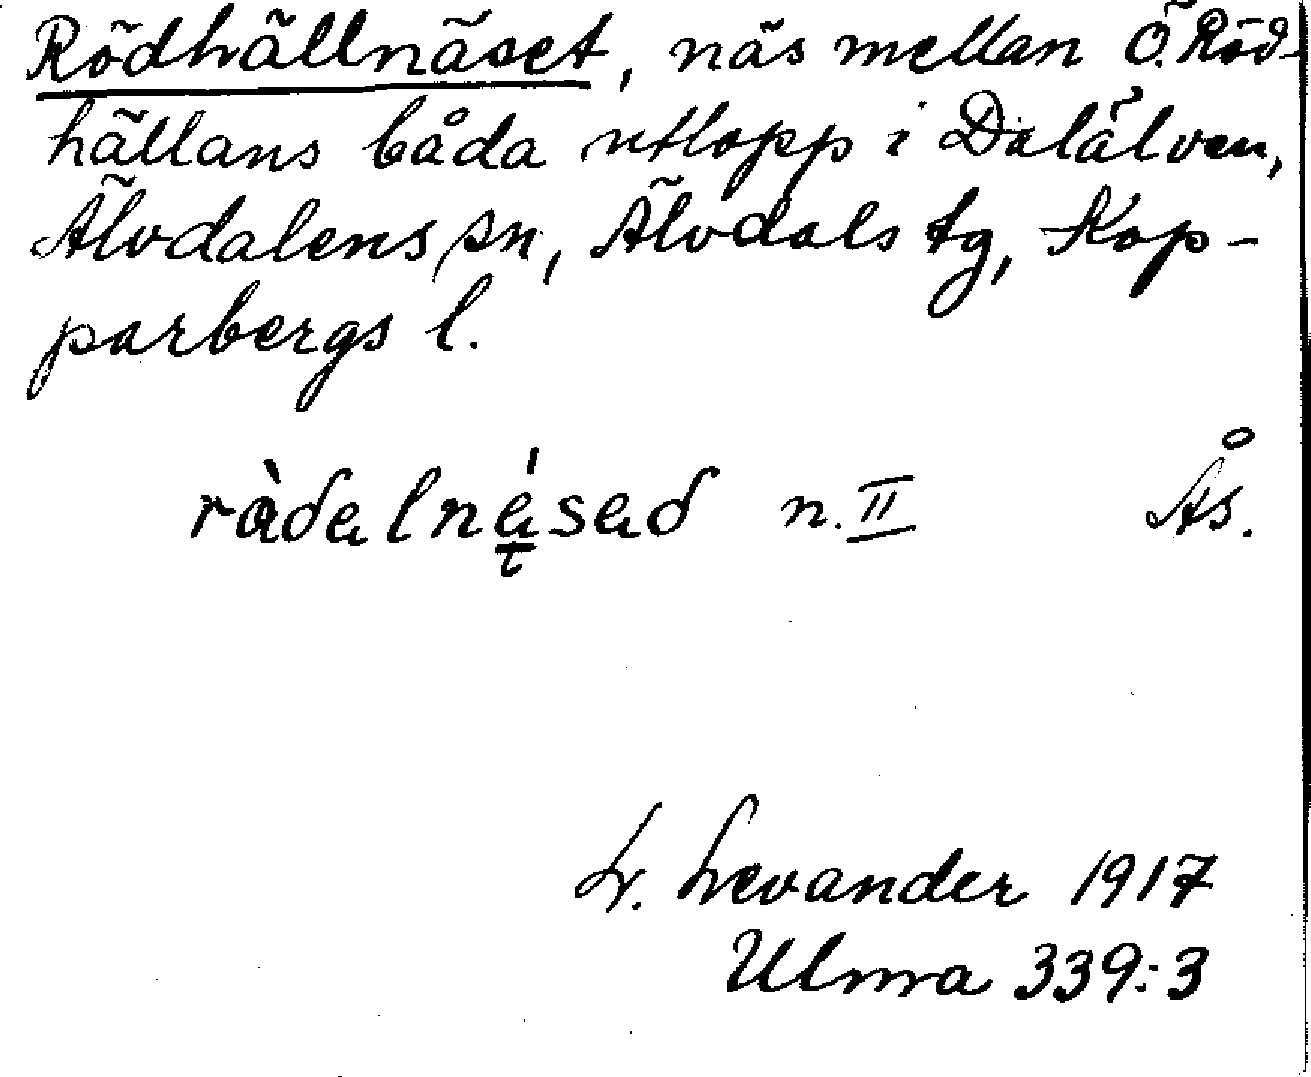 Rödhällnäset, näs mellan Ö. Röd-
hällans båda utlopp i Dalälven,
Älvdalens sn, Älvdals tg, Kop-
parbergs l.
n. II Ås.
L. Levander 1917
Ulma 339:3